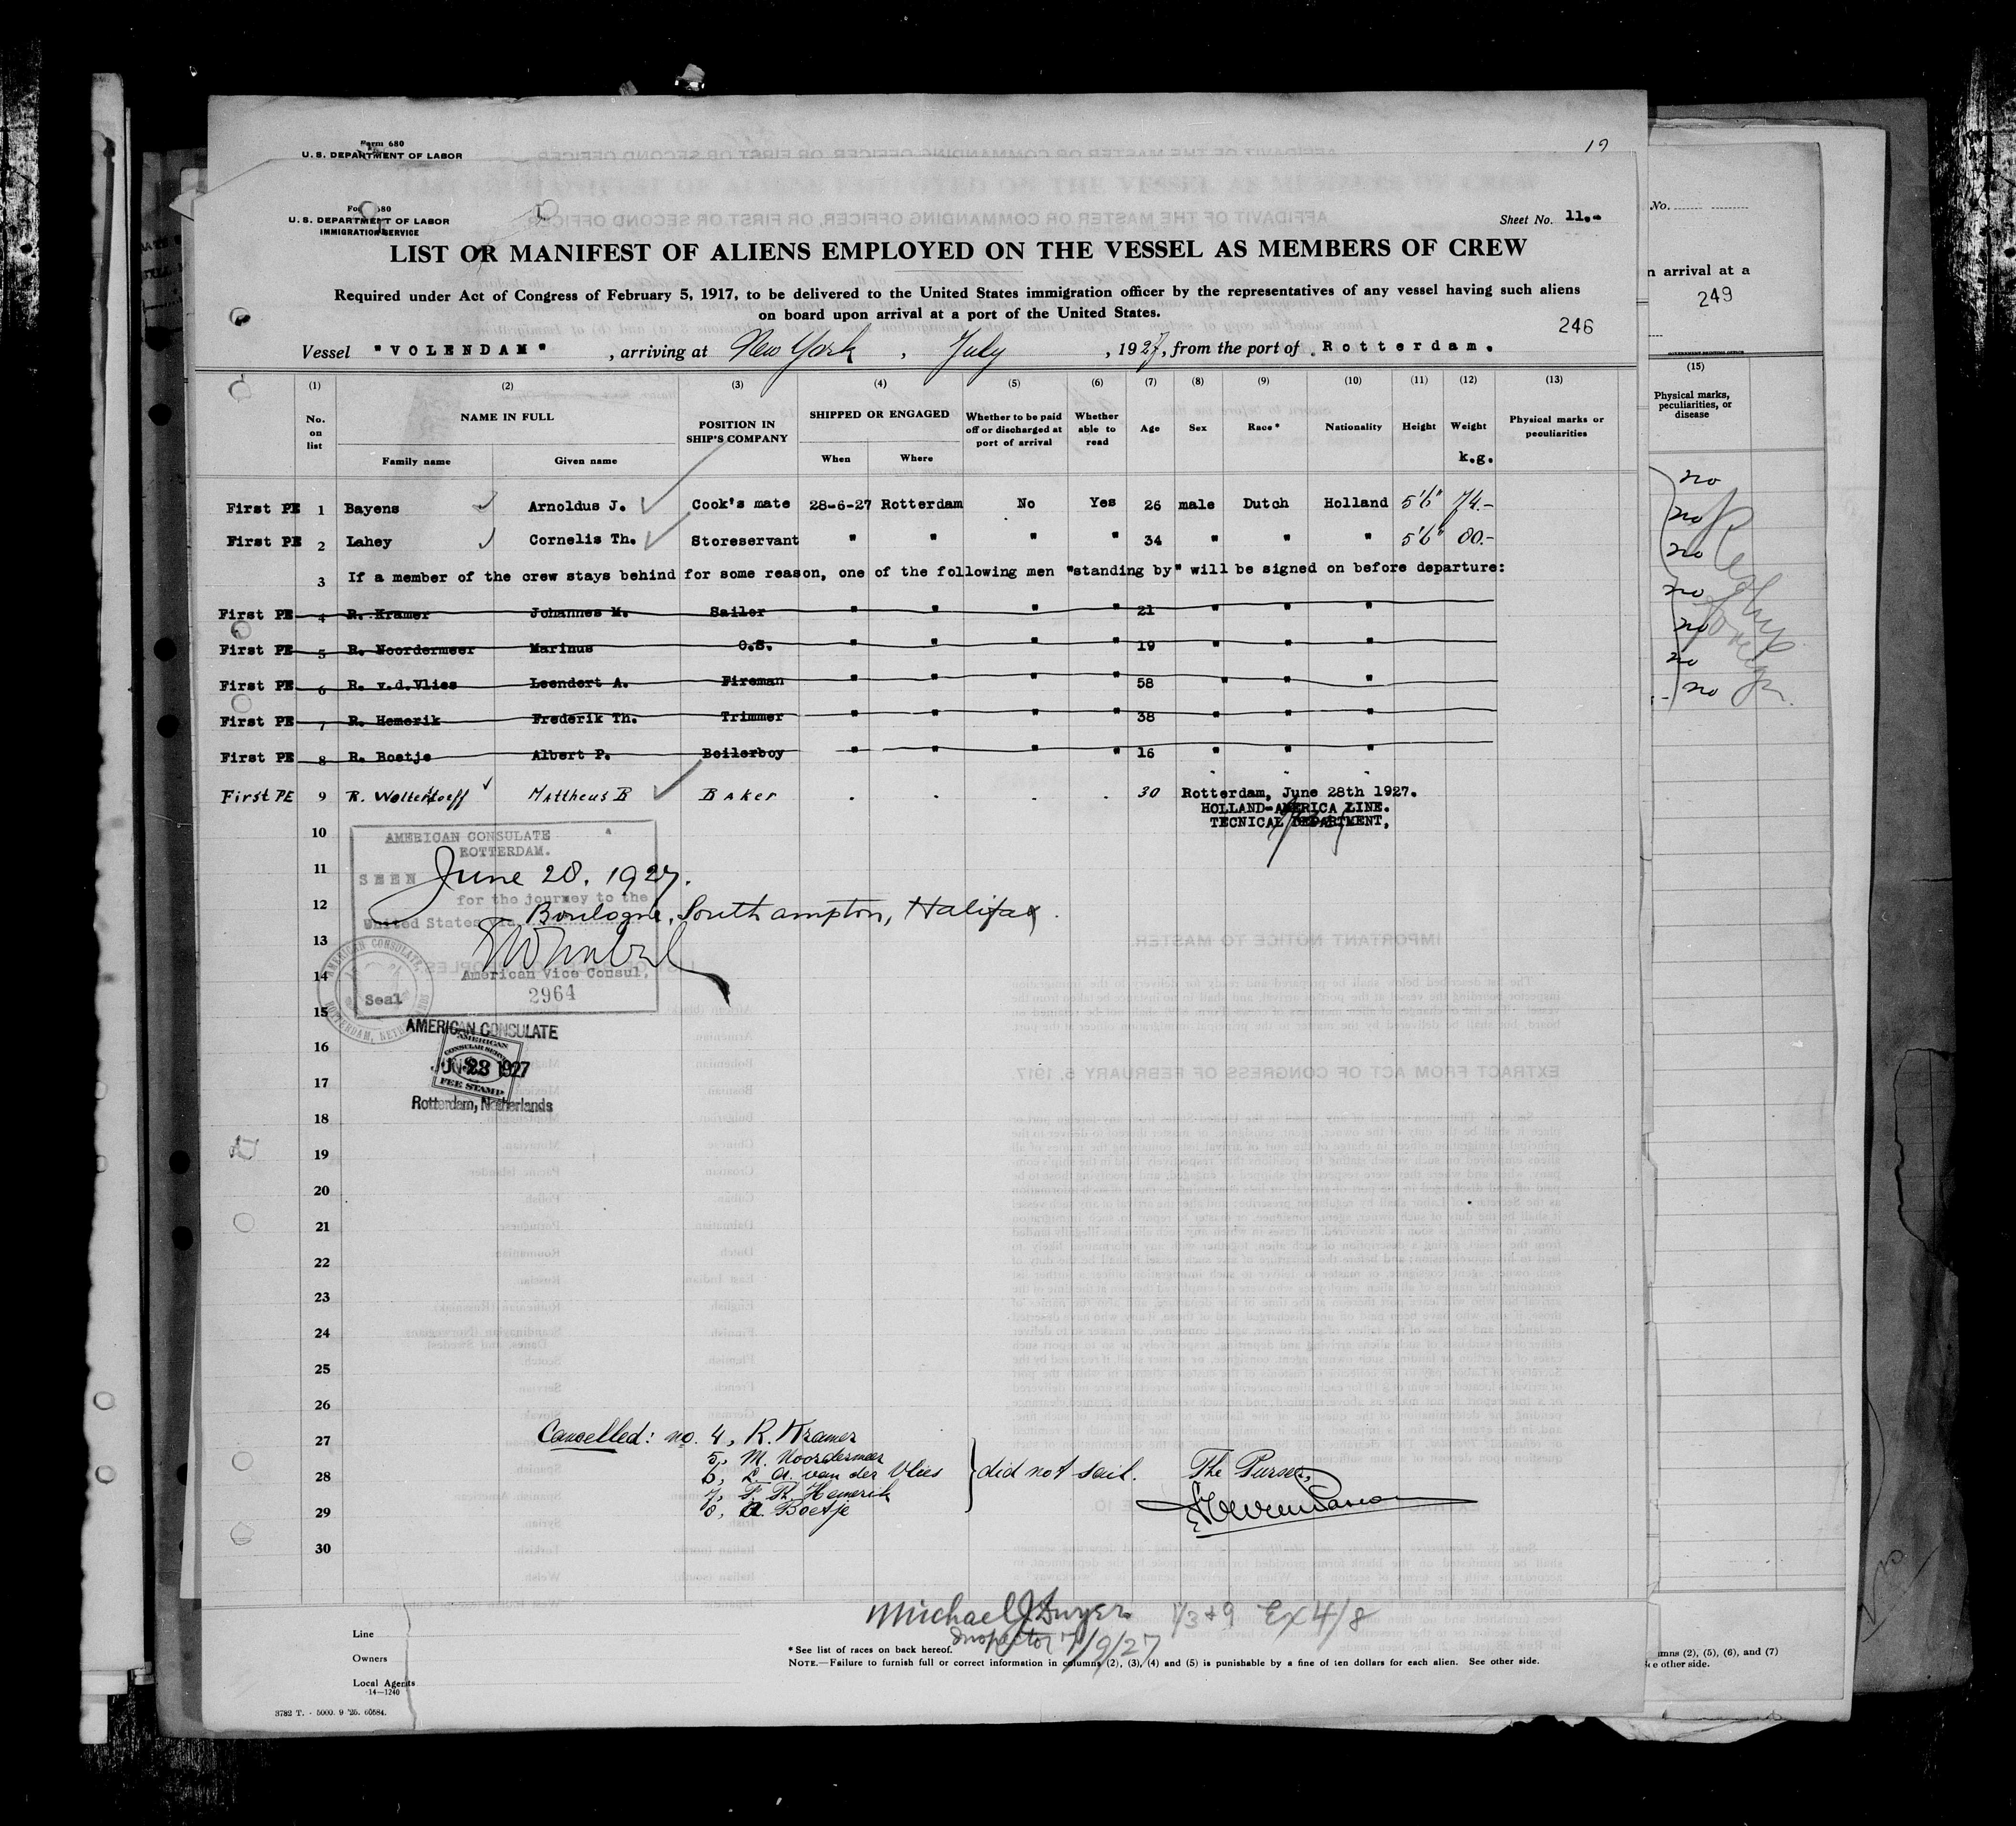 Form 680
U. S. DEPARTMENT OF LABOR
19
U. S. DEPARTMENT OF LABOR
IMMIGRATION SERVICE
Sheet No. 11.-
LIST OR MANIFEST OF ALIENS EMPLOYED ON THE VESSEL AS MEMBERS OF CREW
Required under Act of Congress of February 5, 1917, to be delivered to the United States immigration officer by the representatives of any vessel having such aliens
on board upon arrival at a port of the United States.
246
Vessel "VOLENDAM", arriving at New York, July, 1927, from the port of Rotterdam.
(1) (2) (3) (4) (5) (6) (7) (8) (9) (10) (11) (12) (13)
No. on list NAME IN FULL Family name Given name POSITION IN SHIP'S COMPANY SHIPPED OR ENGAGED When Where Whether to be paid off or discharged at port of arrival Whether able to read Age Sex Race* Nationality Height Weight k.g. Physical marks or peculiarities
First PE 1 Bayens Arnoldus J. Cook's mate 28-6-27 Rotterdam No Yes 26 male Dutch Holland 5'6" 74.-
First PE 2 Lahey Cornelis Th. Storeservant " " " " 34 " " " 5'6" 80.-
3 If a member of the crew stays behind for some reason, one of the following men "standing by" will be signed on before departure:
First PE 4 R. Kramer Johannes M. Sailor " " " " 21 " " "
First PE 5 R. Noordermeer Marinus O.S. " " " " 19 " " "
First PE 6 R. v.d.Vlies Leendert A. Fireman " " " " 58 " " "
First PE 7 R. Hemerik Frederik Th. Trimmer " " " " 38 " " "
First PE 8 R. Boetje Albert P. Boilerboy " " " " 16 " " "
First PE 9 R. Mattheus B Baker . . . . 30
Rotterdam, June 28th 1927.
HOLLAND-AMERICA LINE.
TECNICAL DEPARTMENT,
10
AMERICAN CONSULATE
ROTTERDAM.
11
SEEN June 28, 1927.
for the journey to the
12
United States via Boulogne, Southampton, Halifax.
13
14
American Vice Consul,
2964
Seal
AMERICAN CONSULATE, ROTTERDAM, NETHERLANDS
15
AMERICAN CONSULATE
16
AMERICAN
CONSULAR SERVICE
JUN 28 1927
17
FEE STAMP
Rotterdam, Netherlands
18
19
20
21
22
23
24
25
26
27
28
29
30
Cancelled: no. 4, R. Kramer
5, M. Noordermeer
6, L. A. van der Vlies
7, F. Th. Hemerik
8, A. Boetje
did not sail.
The Purser,
Michael J. Dwyer 1/3+9 Ex 4/8
Inspector 7/9/27
Line
Owners
Local Agents
14—1240
*See list of races on back hereof.
NOTE.—Failure to furnish full or correct information in columns (2), (3), (4) and (5) is punishable by a fine of ten dollars for each alien. See other side.
3782 T. - 5000. 9 '25. 60584.
No.
n arrival at a
249
GOVERNMENT PRINTING OFFICE
(15)
Physical marks, peculiarities, or disease
no
no
no
no
no
no
no
umns (2), (5), (6), and (7)
e other side.